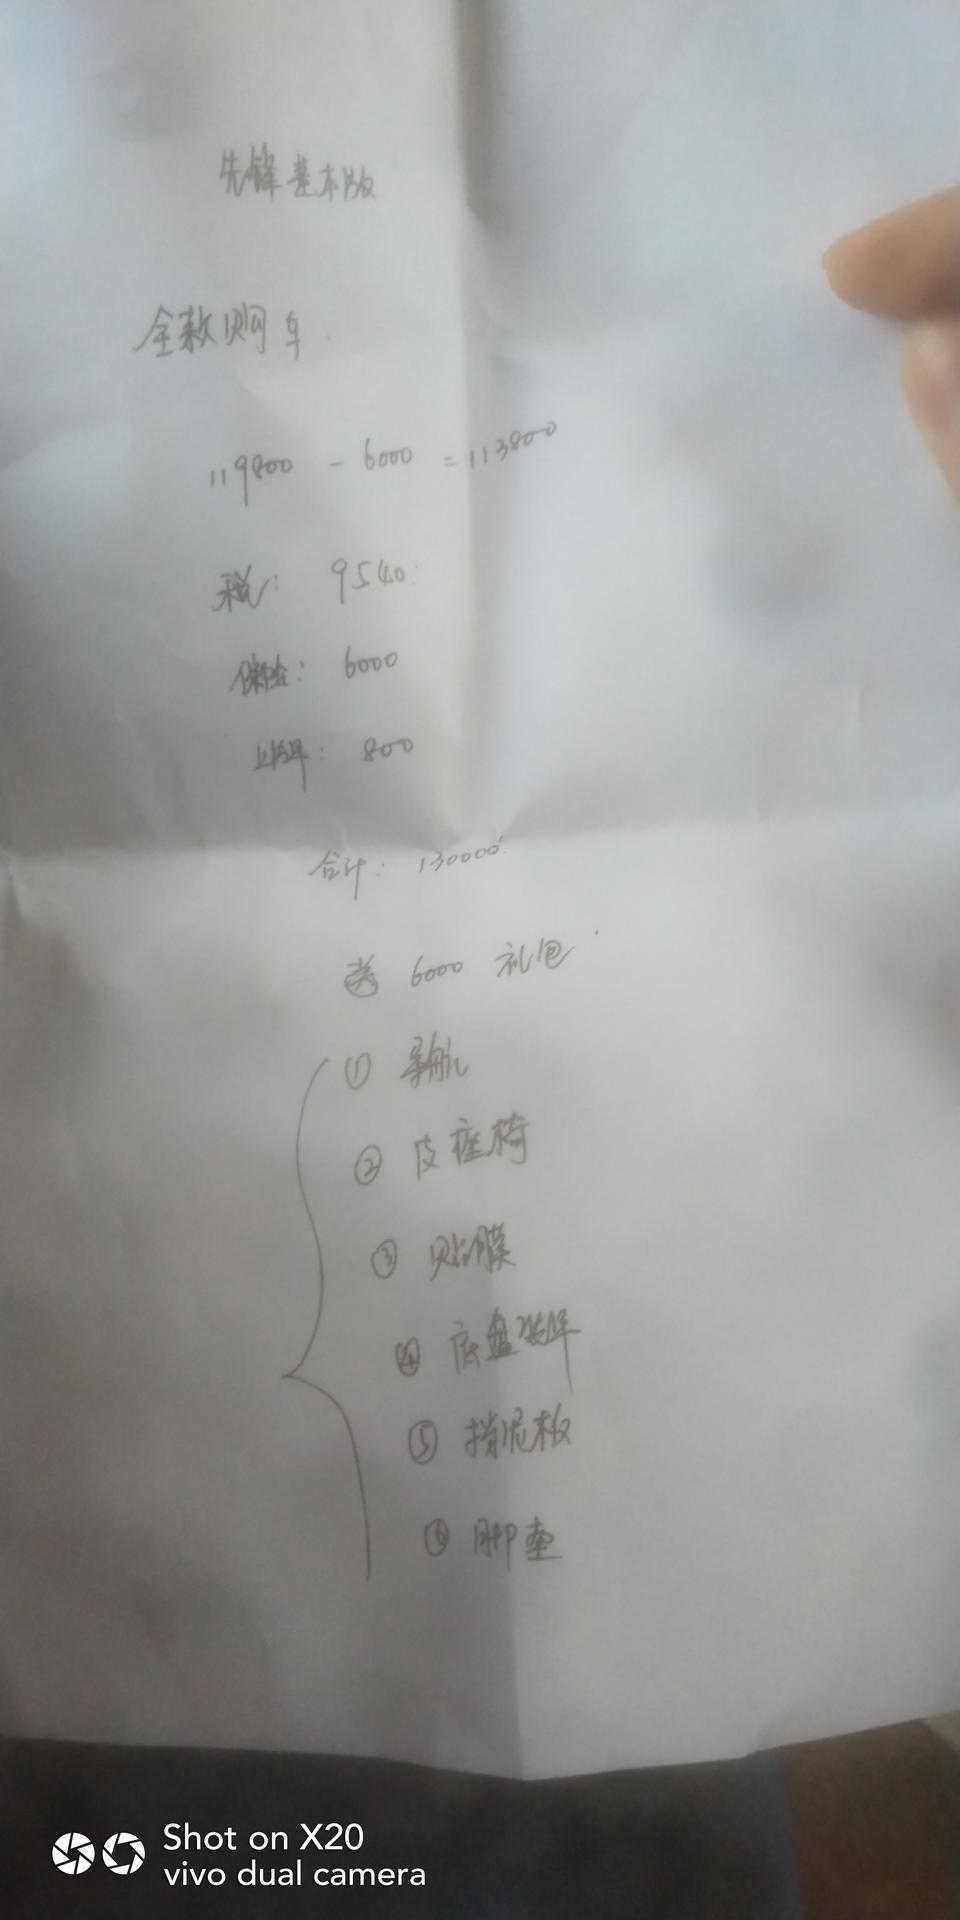 先锋基本版
全款购车.
119800 - 6000 = 113800
税: 9540
保险: 6000
上牌: 800
合计: 130000
送 6000 礼包
① 导航
② 皮座椅
③ 贴膜
④ 底盘装甲
⑤ 挡泥板
⑥ 脚垫
Shot on X20
vivo dual camera